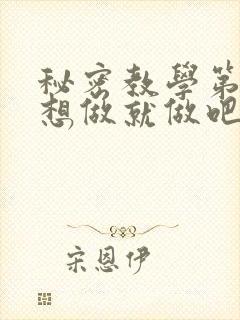 秘密教學第
想做就做吧
宋恩伊